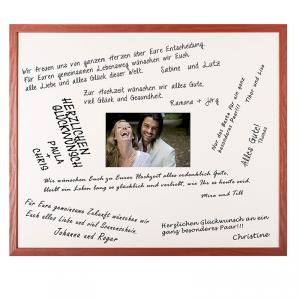 Wir freuen uns von ganzem Herzen über Eure Entscheidung.
Für Euren gemeinsamen Lebensweg wünschen wir Euch
alle Liebe und alles Glück dieser Welt.
Sabine und Lutz
Zur Hochzeit wünschen wir alles Gute,
viel Glück und Gesundheit.
Ramona + Jörg
HERZLICHEN
GLÜCKWUNSCH
PAULA
+
CHRIS
Nur das Beste für ein ganz
besonderes Paar!!!
Thor und Lisa
Alles Gute!
Thomas
Wir wünschen Euch zu Eurer Hochzeit alles erdenklich Gute,
bleibt ein Leben lang so glücklich und verliebt, wie Ihr es heute seid.
Mira und Till
Für Eure gemeinsame Zukunft wünschen wir
Euch alles Liebe und viel Sonnenschein.
Johanna und Roger
Herzlichen Glückwunsch an ein
ganz besonderes Paar!!!
Christine